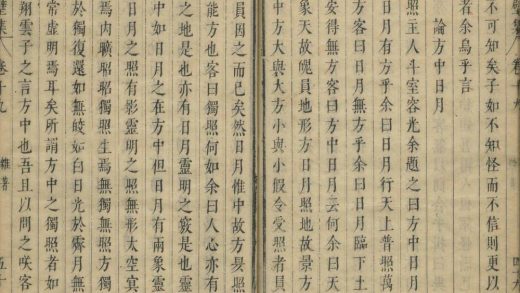 集 卷十九
不可知矣子如不知怪而不信更以
者余烏乎言
論方中日月
照主人斗室容光余題之曰方中日月
日月有方乎余曰日月行天上普照萬
方客曰日月無方乎余曰日月臨下土
安得無方客曰方中日月云何余曰天
象天故魄員地形方日月照地故景方
方大與大方小與小假令受照者員
員因之而已矣然日月惟中故方晷照
能方也客曰獨照何如余曰人心亦有
之地是也亦有日月靈明之竅是也
中如日月之在方中但日月有兩象靈
日月之照有影靈明之照無形太空冥
焉內曠昭昭獨照生焉無獨無照方獨
於獨復還如無皎如白日光於霽月無
常虛明焉耳矣所謂方中之獨照者如
翔雲子之言方中也吾且以問之咲客
集 卷十九 雜著 五十